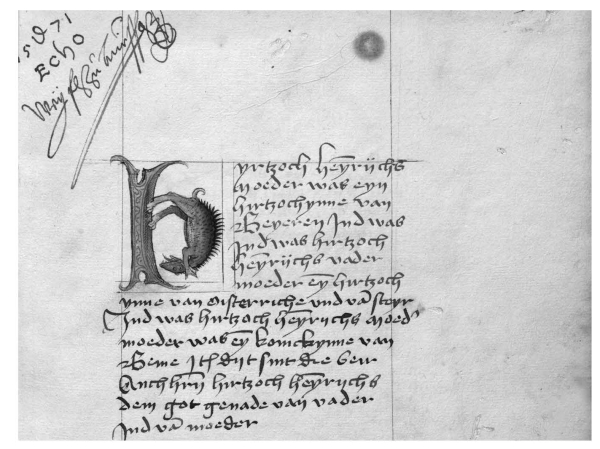 15 71
ECHO
hyrtzoch heyrijchs
moeder was eyn
hirtzochynne van
Beyeren Ind was
Ind was hirtzoch
heyrijchs vader
moeder ey hirtzoch
ynne van Oisterriche vnd vā steyr
Ind was hirtzoch heyrijchs moed
moeder was ey konickynne van
Beme Itē dijt sint die
hirtzoch heyrijchs
dem got genade van vader
Ind vā moeder